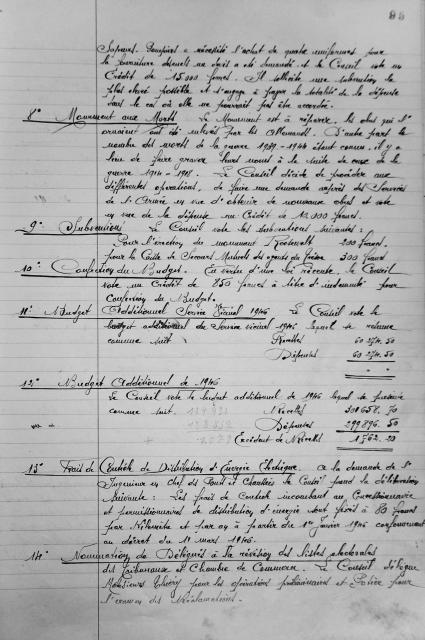 98
Sapeurs Pompiers a nécessité l'achat de quatre uniformes pour
la fourniture desquels un devis a été demandé et le Conseil vote un
Crédit de 15000 francs. Il sollicite une subvention la
plus élevée possible et s'engage à payer la totalité de la dépense
dans le cas où elle ne pourrait pas être accordée.
8° Monument aux Morts Le Monument est à réparer, les obus qui l'
ornaient ont été enlevés par les Allemands. D'autre part le
nombre des morts de la guerre 1939-1944 étant connu, il y a
lieu de faire graver leurs noms à la suite de ceux de la
guerre 1914-1918. Le Conseil décide de procéder aux
différentes opérations, de faire une demande auprès des Services
de l'Armée en vue d'obtenir de nouveaux obus et vote
en vue de la dépense un Crédit de 12.000 francs.
9° Subventions Le Conseil vote les subventions suivantes:
Pour l'érection du monument Roosevelt 200 francs
pour la Caisse de Secours Mutuels des agents du 300 francs
10° Confection du Budget. En vertu d'une loi récente, le Conseil
vote un Crédit de 850 francs à titre d'indemnité pour
Confection du Budget.
11° Budget Additionnel Service Vicinal 1946 Le Conseil vote le
budget additionnel du Service vicinal 1946 lequel se résume
comme suit Recettes 60 274. 50
Dépenses 60 274. 50
12° Budget Additionnel de 1946
Le Conseil vote le budget additionnel de 1946 lequel se présente
comme suit. Recettes 301658. 70
Dépenses 299896. 50
Excédent de Recettes 1762. 20
13° Frais de Contrôle de Distribution d'Energie Electrique. A la demande de l'
Ingénieur en Chef des Ponts et Chaussées le Conseil prend la délibération
suivante: Les frais de Contrôle incombant au Concessionnaire
et permissionnaires de distribution d'énergie sont fixés à 80 francs
par Kilomètre et par an à partir du 1er janvier 1946 conformément
au décret du 11 mars 1946.
14° Nomination de Délégués à la révision des listes électorales
des Tribunaux et Chambre de Commerce. Le Conseil délègue
Messieurs pour les opérations préliminaires et pour
l'examen des Réclamations.